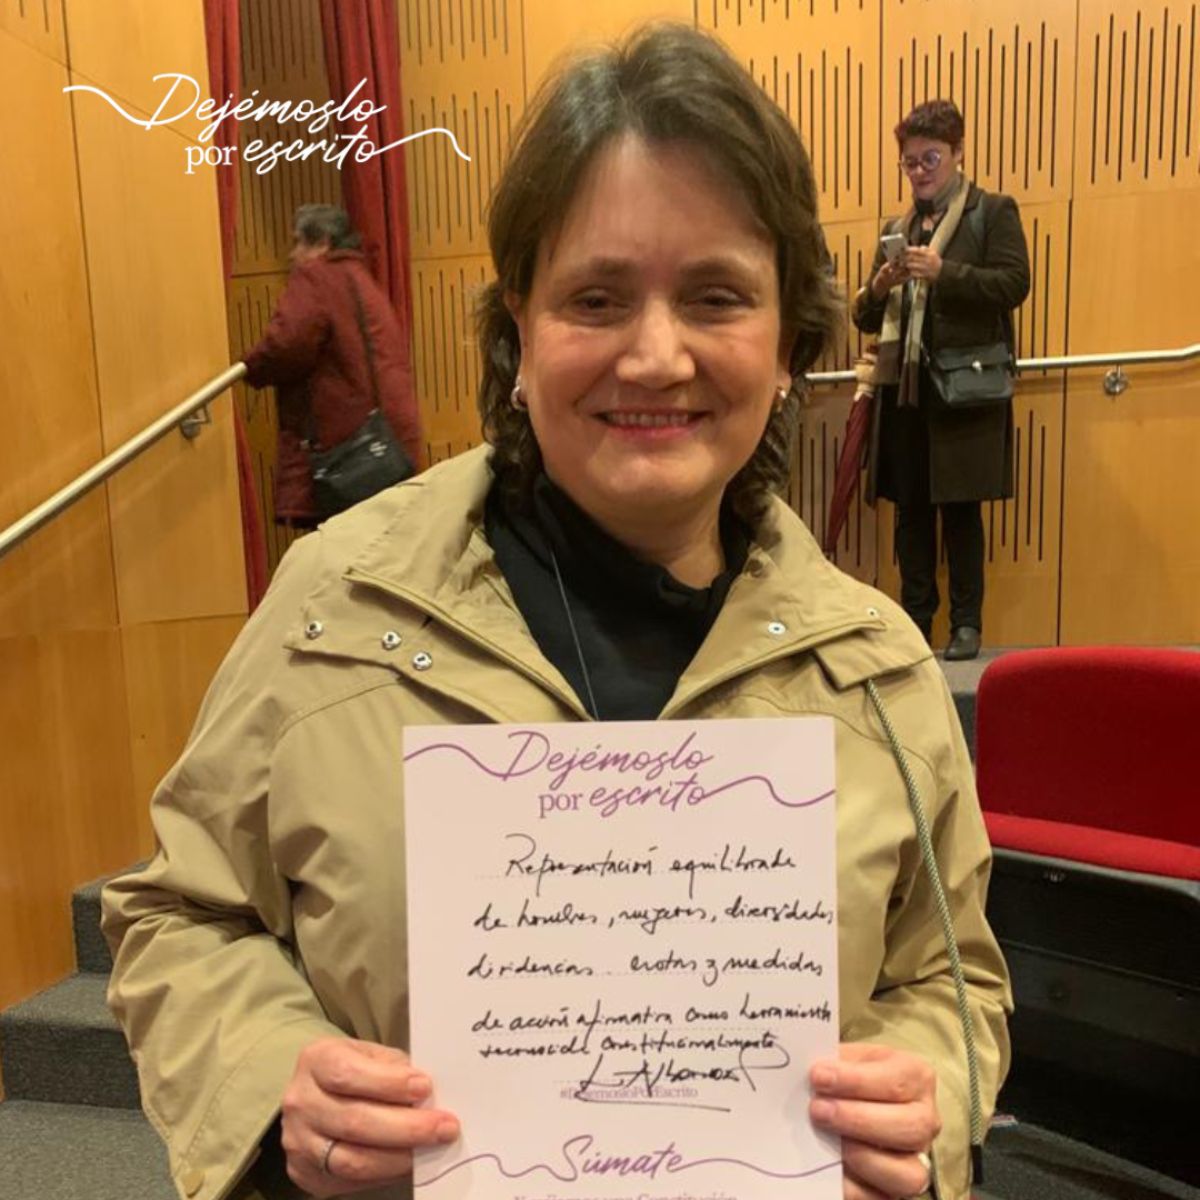 Dejémoslo
por escrito
Dejémoslo
por escrito
Representación equilibrada
de hombres, mujeres, diversidades,
disidencias. cuotas y medidas
de acción afirmativa como herramienta
reconocida constitucionalmente
#DejemosloPorEscrito
Súmate
una Constitución